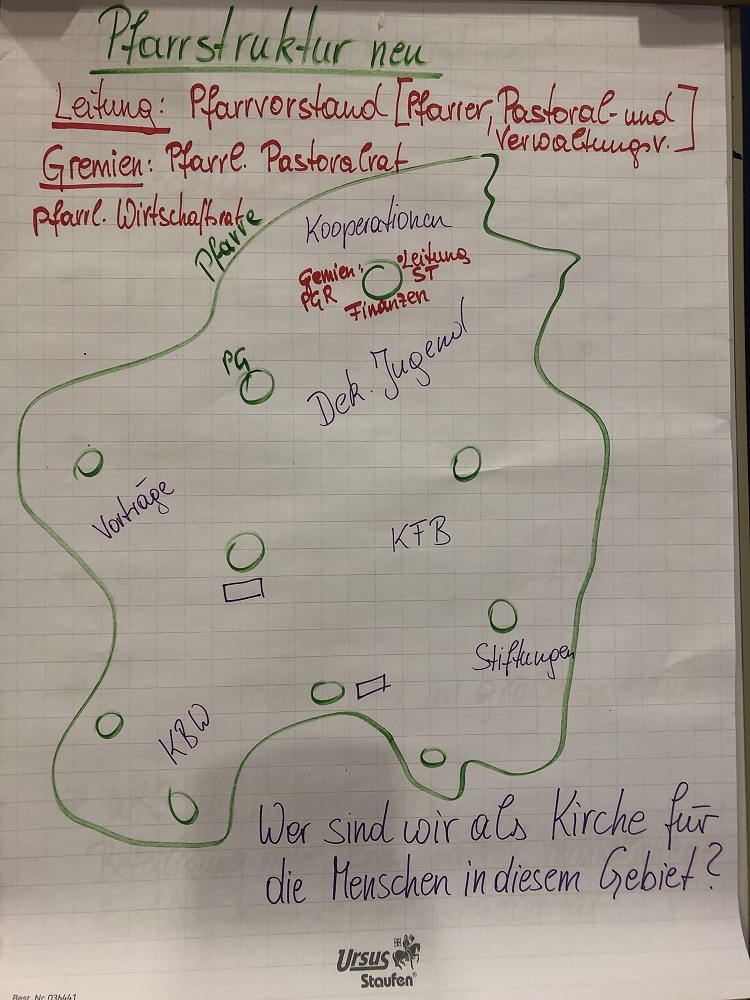 Pfarrstruktur neu
Leitung: Pfarrvorstand [Pfarrer, Pastoral- und
Verwaltungsv.]
Gremien: Pfarrl. Pastoralrat
pfarrl. Wirtschaftsrat
Pfarre
Kooperationen
Gremien:
PGR
Leitung
ST
Finanzen
PG
Dek. Jugend
Vorträge
KFB
Stiftungen
KBW
Wer sind wir als Kirche für
die Menschen in diesem Gebiet?
Ursus
Staufen
Best. Nr. 036441